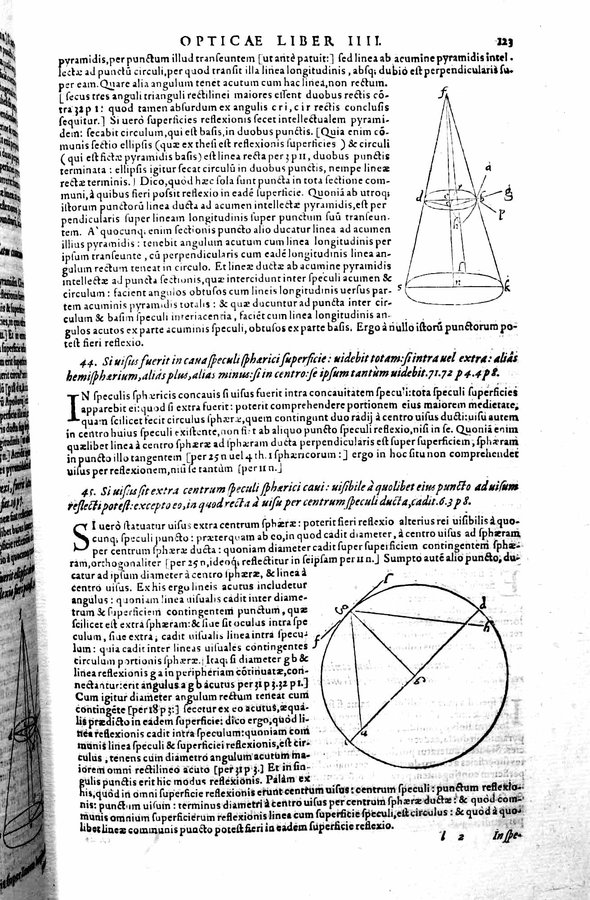 OPTICAE LIBER IIII. 123
pyramidis, per punctum illud transeuntem [ut antè patuit:] sed linea ab acumine pyramidis intel-
lectæ ad punctũ circuli, per quod transit illa linea longitudinis, absq; dubio est perpendicularis su-
per eam. Quare alia angulum tenet acutum cum hac linea, non rectum.
[secus tres anguli trianguli rectilinei maiores essent duobus rectis cõ-
tra 32 p 1: quod tamen absurdum ex angulis c r i, c i r rectis conclusis
sequitur.] Si uerò superficies reflexionis secet intellectualem pyrami-
dem: secabit circulum, qui est basis, in duobus punctis. [Quia enim cõ-
munis sectio ellipsis (quæ ex thesi est reflexionis superficies) & circuli
(qui est fictæ pyramidis basis) est linea recta per 3 p 11, duobus punctis
terminata: ellipsis igitur secat circulũ in duobus punctis, nempe lineæ
rectæ terminis.] Dico, quòd hæc sola sunt puncta in tota sectione com-
muni, à quibus fieri possit reflexio in eadẽ superficie. Quoniã ab utroq;
istorum punctorũ linea ducta ad acumen intellectæ pyramidis, est per-
pendicularis super lineam longitudinis super punctum suũ transeun-
tem. A' quocunq; enim sectionis puncto alio ducatur linea ad acumen
illius pyramidis: tenebit angulum acutum cum linea longitudinis per
ipsum transeunte, cũ perpendicularis cum eadẽ longitudinis linea an-
gulum rectum teneat in circulo. Et lineæ ductæ ab acumine pyramidis
intellectæ ad puncta sectionis, quæ intercidunt inter speculi acumen &
circulum: facient angulos obtusos cum lineis longitudinis uersus par-
tem acuminis pyramidis totalis: & quæ ducuntur ad puncta inter cir-
culum & basim speculi interiacentia, faciẽt cum linea longitudinis an-
gulos acutos ex parte acuminis speculi, obtusos ex parte basis. Ergo à nullo istorũ punctorum po-
test fieri reflexio.
44. Si uisus fuerit in caua speculi sphærici superficie: uidebit totam: si intra uel extra: aliàs
hemisphærium, aliàs plus, aliàs minus: si in centro: se ipsum tantùm uidebit. 71. 72 p 4. 4 p 8.
IN speculis sphæricis concauis si uisus fuerit intra concauitatem speculi: tota speculi superficies
apparebit ei: quòd si extra fuerit: poterit comprehendere portionem eius maiorem medietate,
quam scilicet fecit circulus sphæræ, quem contingunt duo radij à centro uisus ducti: uisu autem
in centro huius speculi existente, non fit ab aliquo puncto speculi reflexio, nisi in se. Quoniã enim
quælibet linea à centro sphæræ ad sphæram ducta perpendicularis est super superficiem, sphæram
in puncto illo tangentem [per 25 n uel 4 th. 1 sphæricorum:] ergo in hoc situ non comprehendet
uisus per reflexionem, nisi se tantùm [per 11 n.]
45. Si uisus sit extra centrum speculi sphærici caui: uisibile à quolibet eius puncto ad uisum
reflecti potest: excepto eo, in quod recta à uisu per centrum speculi ducta, cadit. 6. 3 p 8.
SI uerò statuatur uisus extra centrum sphæræ: poterit fieri reflexio alterius rei uisibilis à quo-
cunq; speculi puncto: præterquam ab eo, in quod cadit diameter, à centro uisus ad sphæram
per centrum sphæræ ducta: quoniam diameter cadit super superficiem contingentem sphæ-
ram, orthogonaliter [per 25 n, ideoq; reflectitur in seipsam per 11 n.] Sumpto autẽ alio puncto, du-
catur ad ipsum diameter à centro sphæræ, & linea à
centro uisus. Ex his ergo lineis acutus includetur
angulus: quoniam linea uisualis cadit inter diame-
trum & superficiem contingentem punctum, quæ
scilicet est extra sphæram: & siue sit oculus intra spe
culum, siue extra, cadit uisualis linea intra specu-
lum: quia cadit inter lineas uisuales contingentes
circulum portionis sphæræ. Itaq; si diameter g b &
linea reflexionis g a in peripheriam cõtinuatæ, con-
nectantur: erit angulus a g b acutus per 31 p 3. 32 p 1.]
Cum igitur diameter angulum rectum teneat cum
contingẽte [per 18 p 3:] secetur ex eo acutus, æqua-
lis prædicto in eadem superficie: dico ergo, quòd li-
nea reflexionis cadit intra speculum: quoniam com
munis linea speculi & superficiei reflexionis, est cir-
culus, tenens cum diametro angulum acutum ma-
iorem omni rectilineo acuto [per 31 p 3.] Et in sin-
gulis punctis erit hic modus reflexionis. Palàm ex
his, quòd in omni superficie reflexionis erunt centrum uisus: centrum speculi: punctum reflexio-
nis: punctum uisum: terminus diametri à centro uisus per centrum sphæræ ductæ: & quòd com-
munis omnium superficierum reflexionis linea cum superficie speculi, est circulus: & quòd à quo-
libet lineæ communis puncto potest fieri in eadem superficie reflexio.
l 2 In spe-